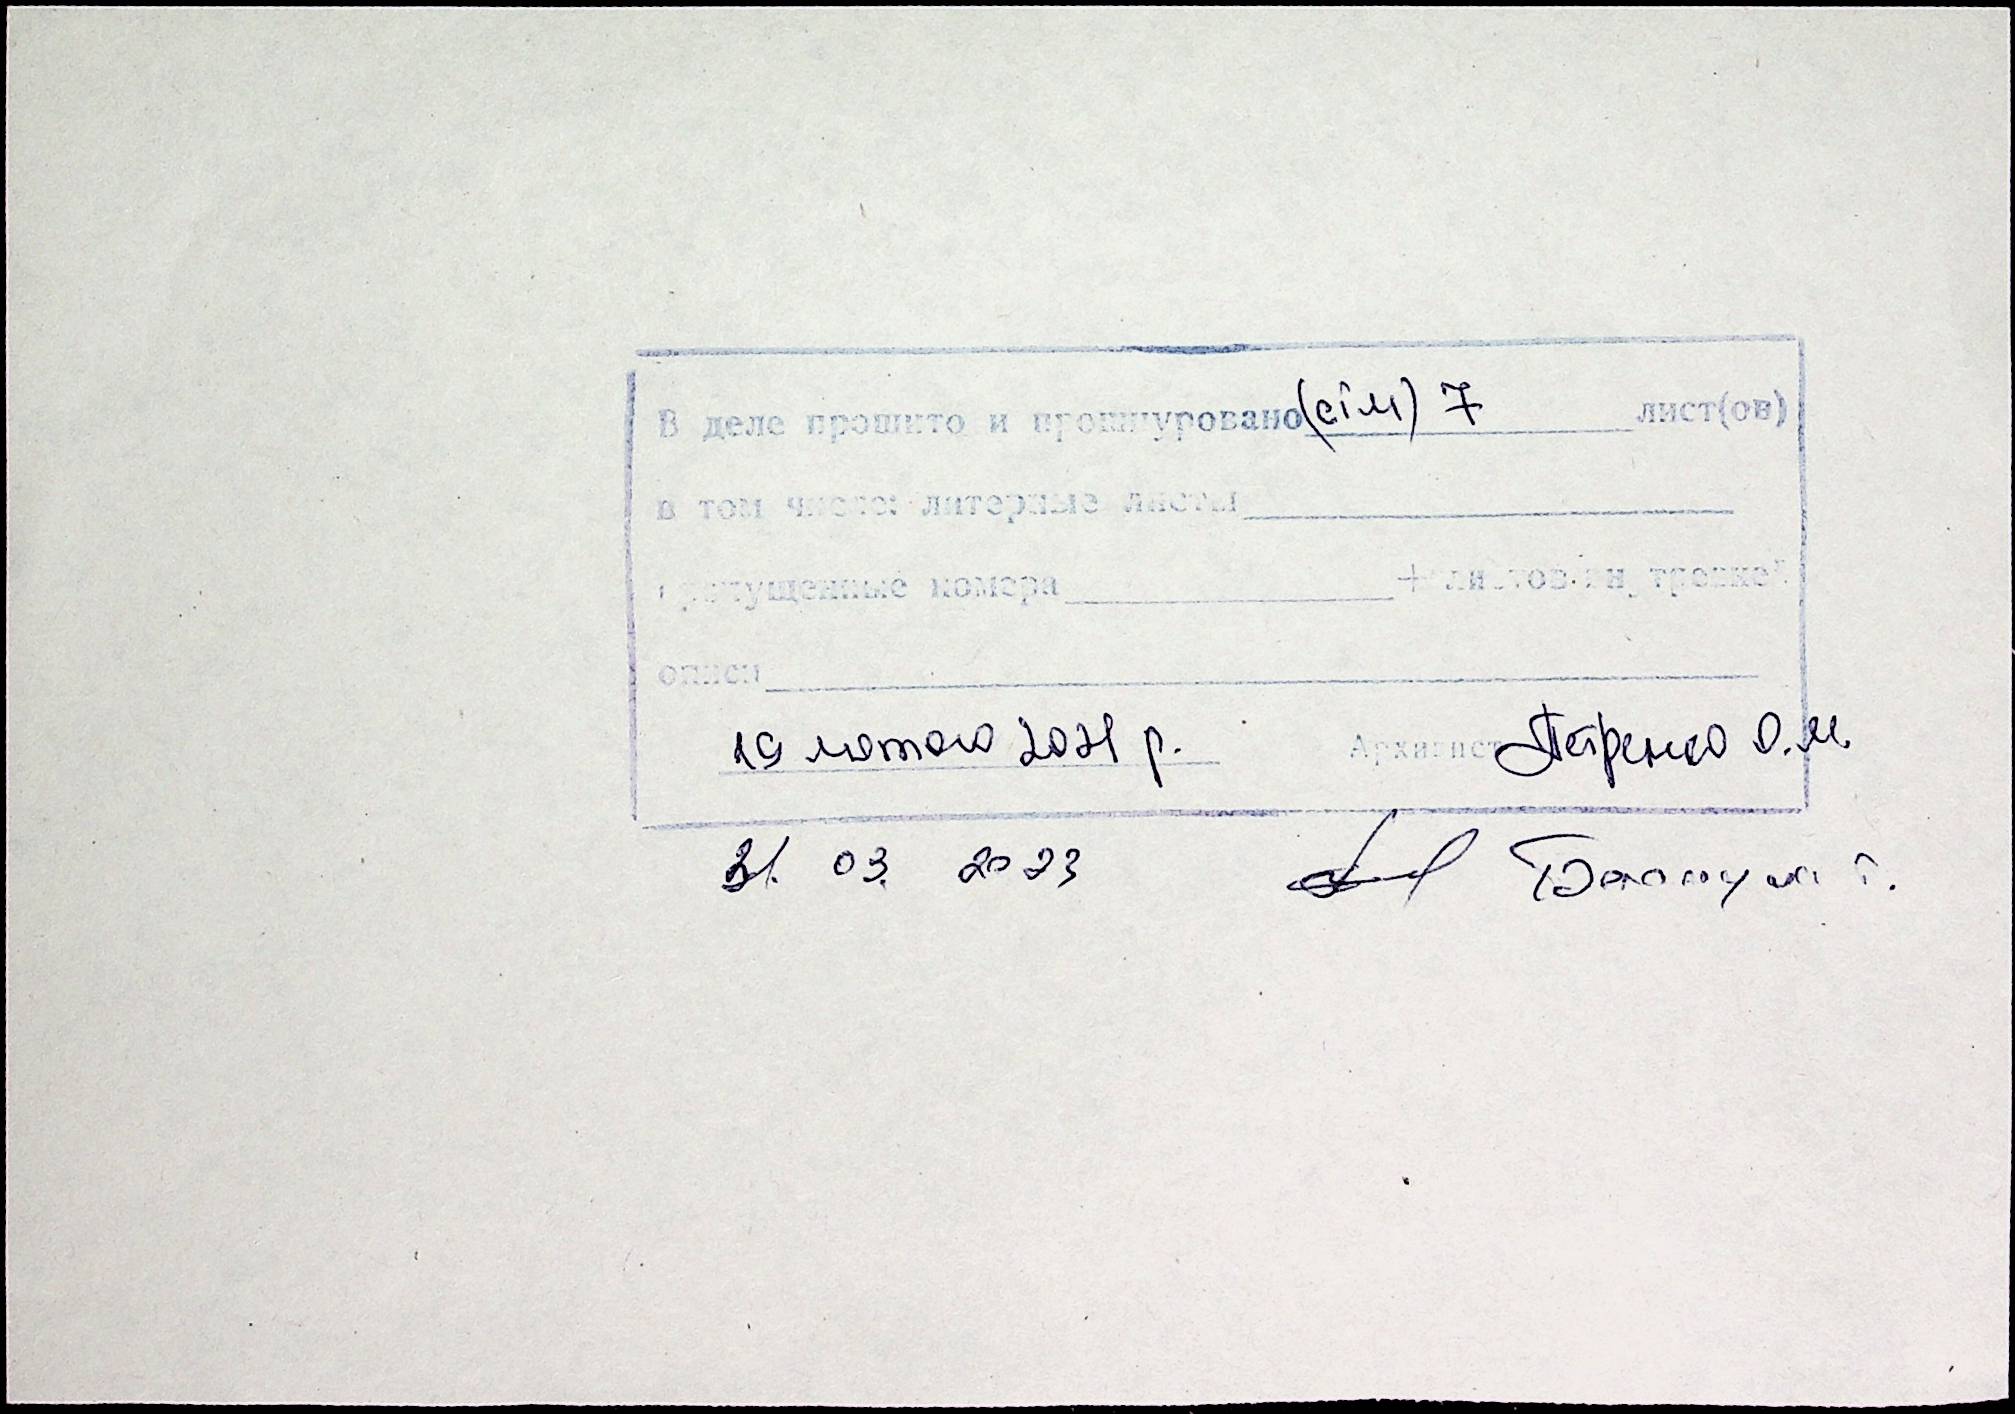 В деле прошито и прошнуровано (сім) 7 лист(ов)
в том числе: литерные листы
пропущенные номера + листов вн тренней
описи
19 лютого 2021 р. Архивист Петренко О.М.
31. 03. 2023